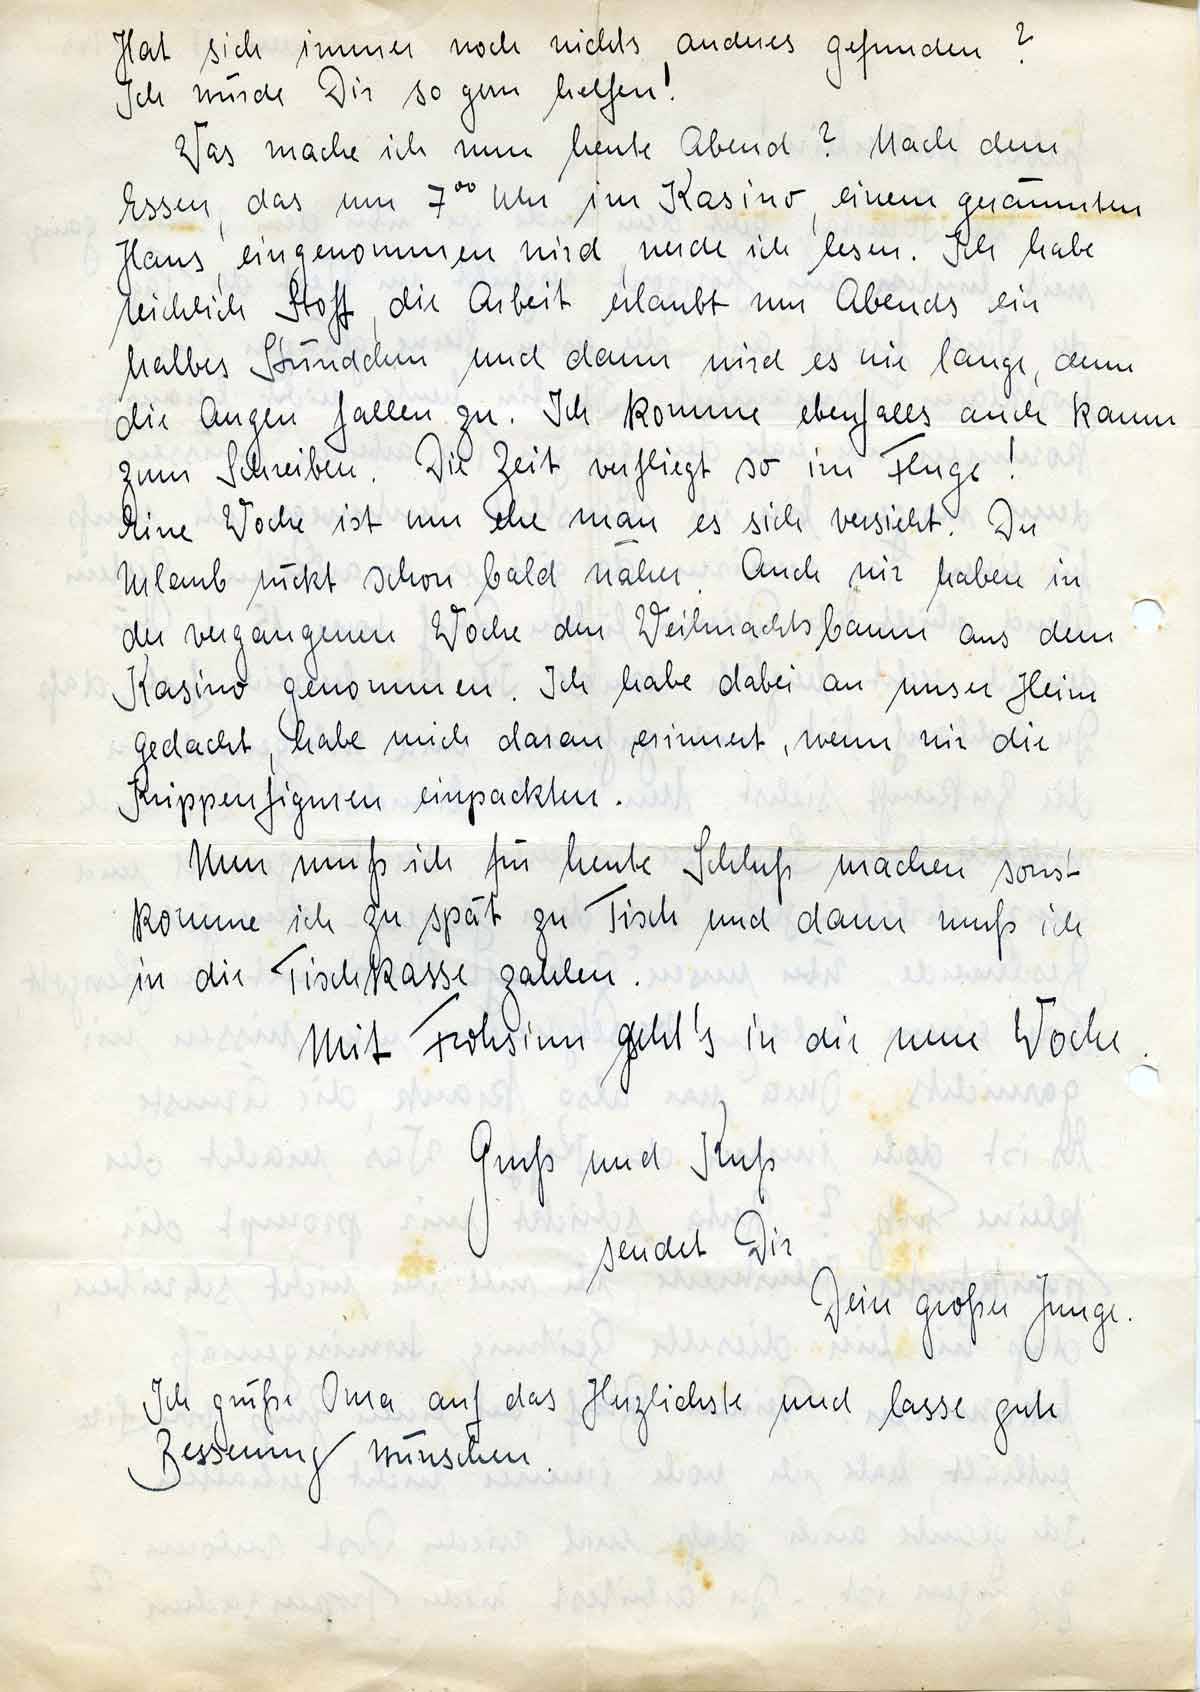 Hat sich immer noch nichts anderes gefunden?
Ich würde Dir so gern helfen!
Was mache ich nun heute Abend? Nach dem
Essen, das um 7⁰⁰ Uhr im Kasino, einem geräumten
Haus, eingenommen wird, werde ich lesen. Ich habe
reichlich Stoff, die Arbeit erlaubt nur Abends ein
halbes Stündchen und dann wird es nie lange, denn
die Augen fallen zu. Ich komme ebenfalls auch kaum
zum Schreiben. Die Zeit verfliegt so im Fluge!
Eine Woche ist um ehe man es sich versieht. Der
Urlaub rückt schon bald näher. Auch wir haben in
der vergangenen Woche den Weihnachtsbaum aus dem
Kasino genommen. Ich habe dabei an unser Heim
gedacht, habe mich daran erinnert, wenn wir die
Krippenfiguren einpackten.
Nun muß ich für heute Schluß machen sonst
komme ich zu spät zu Tisch und dann muß ich
in die Tischkasse zahlen.
Mit Frohsinn geht's in die neue Woche.
Gruß und Kuß
sendet Dir
Dein großer Junge.
Ich grüße Oma auf das Herzlichste und lasse gute
Besserung wünschen.